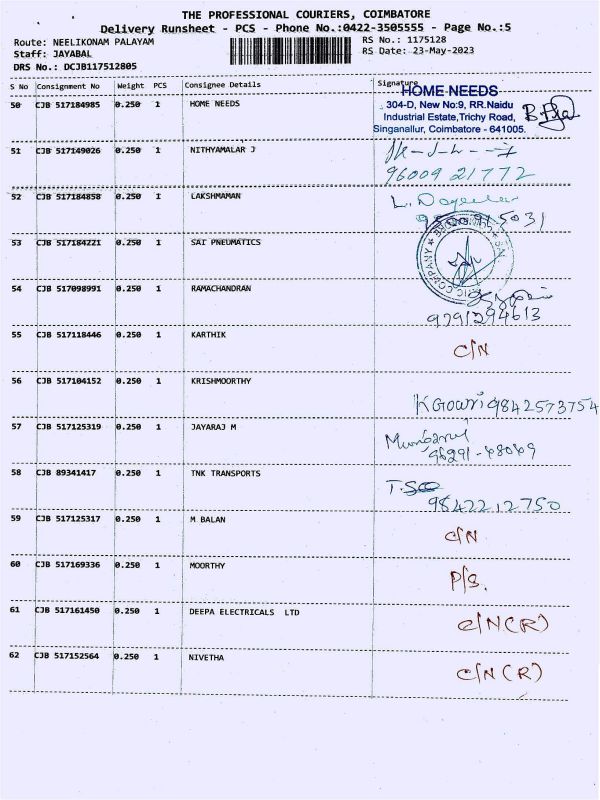 THE PROFESSIONAL COURIERS, COIMBATORE
Delivery Runsheet - PCS - Phone No.:0422-3505555 - Page No.:5
Route: NEELIKONAM PALAYAM
RS No.: 1175128
Staff: JAYABAL
RS Date: 23-May-2023
DRS No.: DCJB117512805
S No Consignment No Weight PCS Consignee Details Signature
HOME NEEDS
50 CJB 517184985 0.250 1 HOME NEEDS
304-D, New No:9, RR.Naidu
Industrial Estate,Trichy Road,
Singanallur, Coimbatore - 641005.
51 CJB 517149026 0.250 1 NITHYAMALAR J
96009 21772
52 CJB 517184858 0.250 1 LAKSHMAMAN
53 CJB 517184221 0.250 1 SAI PNEUMATICS
54 CJB 517098991 0.250 1 RAMACHANDRAN
9791294613
55 CJB 517118446 0.250 1 KARTHIK C/N
56 CJB 517104152 0.250 1 KRISHMOORTHY
K Gowri 9842573754
57 CJB 517125319 0.250 1 JAYARAJ M
96291-48069
58 CJB 89341417 0.250 1 TNK TRANSPORTS
9842212750
59 CJB 517125317 0.250 1 M BALAN C/N
60 CJB 517169336 0.250 1 MOORTHY P/S.
61 CJB 517161450 0.250 1 DEEPA ELECTRICALS LTD C/N(R)
62 CJB 517152564 0.250 1 NIVETHA C/N(R)